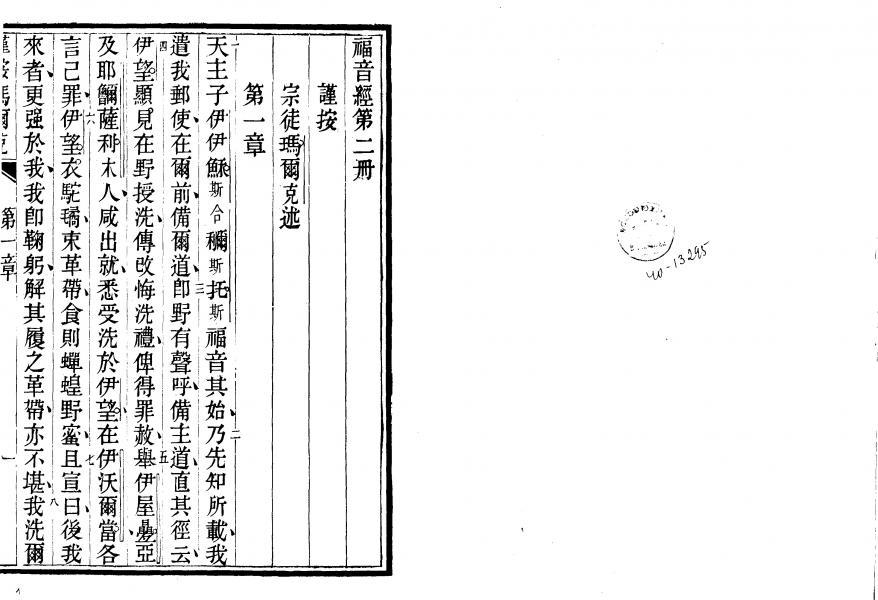 福音經第二冊
謹按
宗徒瑪爾克述
第一章
一
天主子伊伊穌斯合穪斯托斯福音其始二乃先知所載我
遣我郵使在爾前備爾道三卽野有聲呼備主道直其徑云
四伊望顯見在野授洗傳改悔洗禮俾得罪赦五舉伊屋疊亞
及耶釃薩利木人咸出就悉受洗於伊望在伊沃爾當各
言己罪六伊望衣駝毳束革帶食則蟬蝗野蜜七且宣曰後我
來者更强於我我卽鞠躬解其履之革帶亦不堪八我洗爾
瑪爾克
第一章
一
40-13295